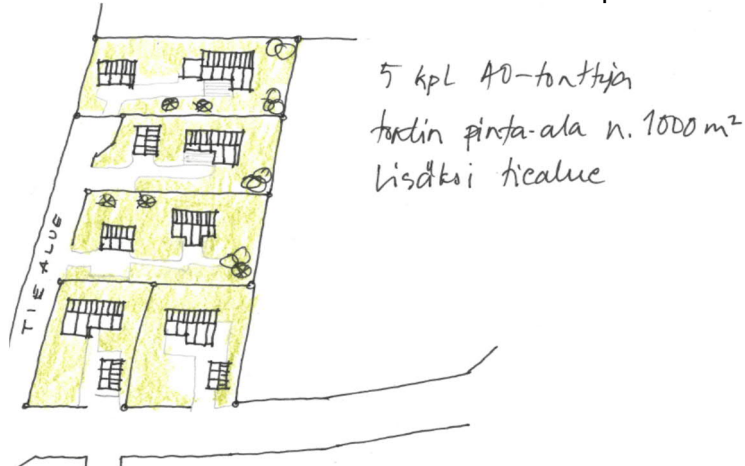 5 kpl AO-tonttija
tontin pinta-ala n. 1000 m²
Lisäksi tiealue
TIEALUE